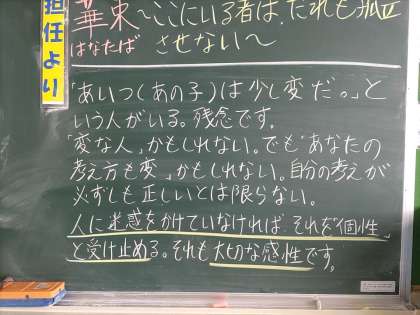 担任より
華束~ここにいる者は、だれも孤立
はなたば させない~
「あいつ(あの子)は少し変だ。」と
いう人がいる。残念です。
「変な人」かもしれない。でも「あなたの
考え方も変」かもしれない。自分の考えが
必ずしも正しいとは限らない。
人に迷惑をかけていなければ、それを「個性」
と受け止める。それも大切な感性です。